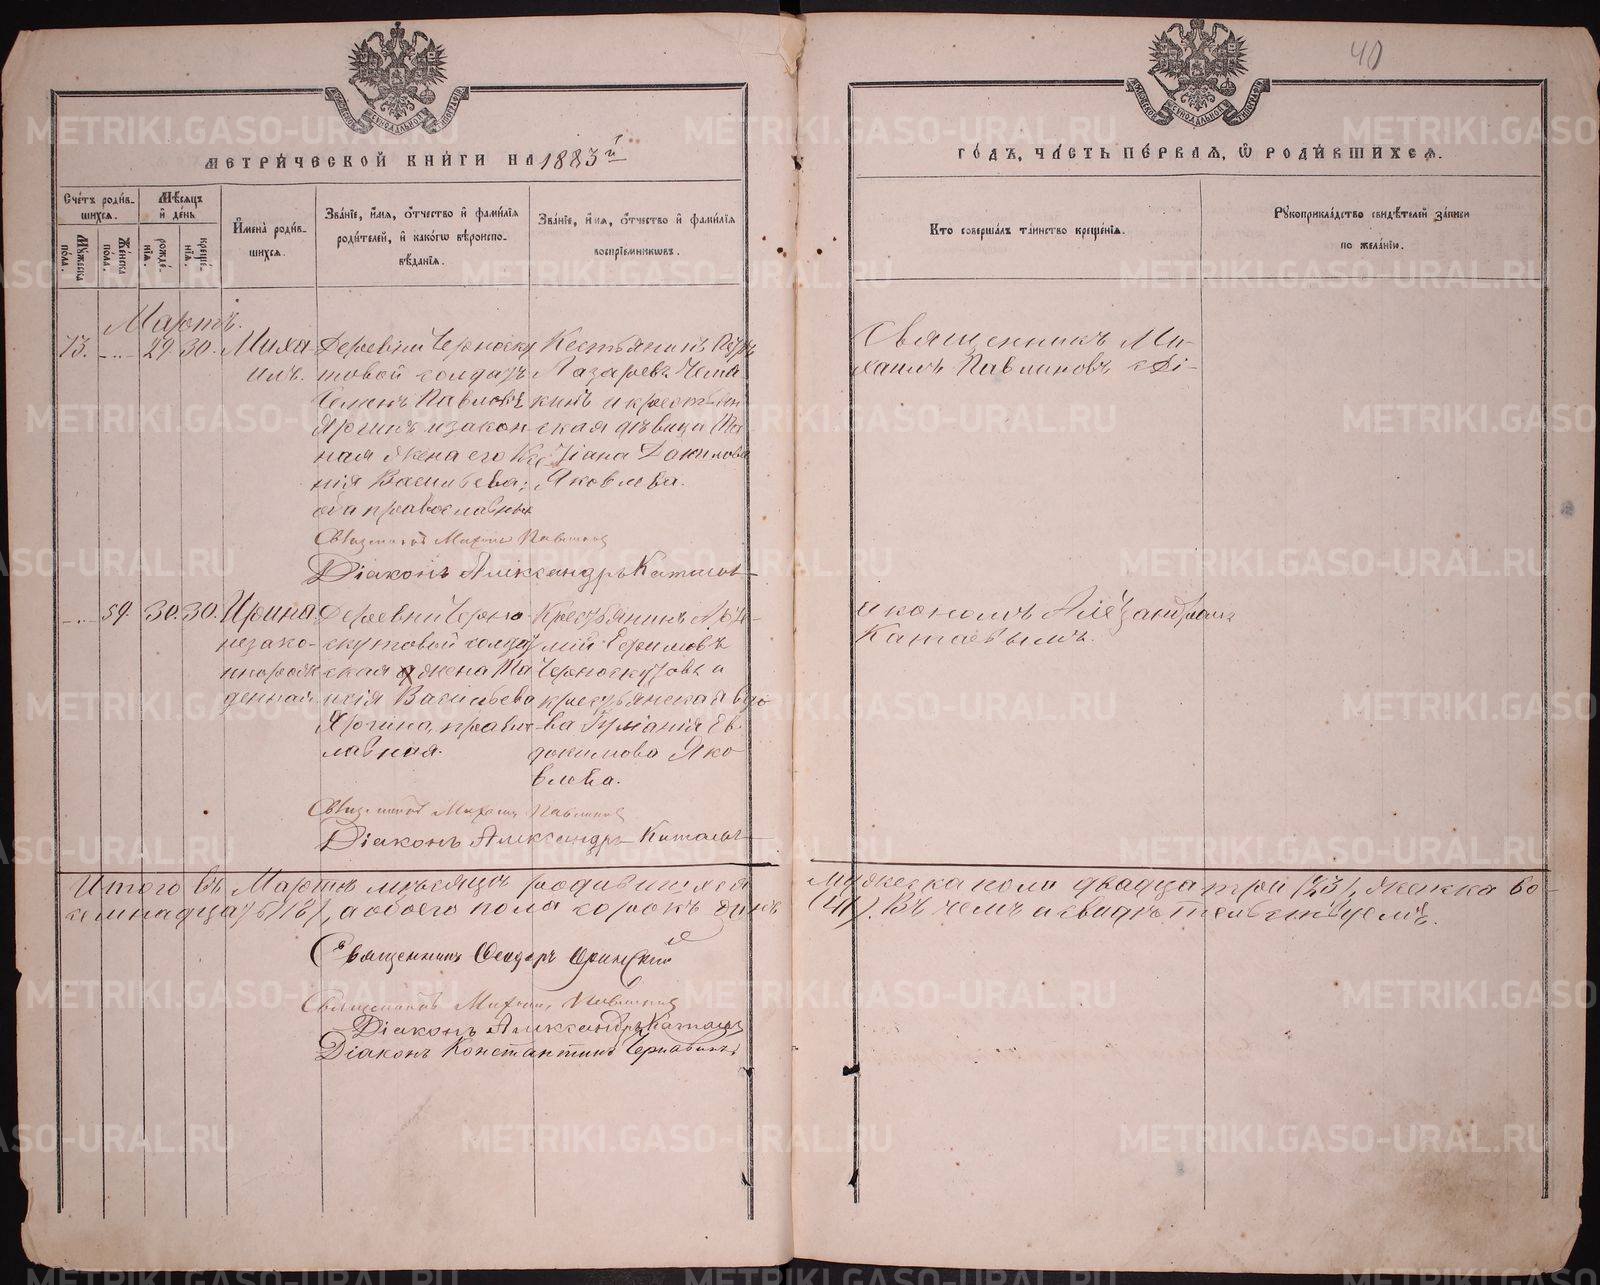 40
МЕТРИЧЕСКОЙ КНИГИ НА 1883й
ГОДЪ, ЧАСТЬ ПЕРВАЯ, Ѡ РОДИВШИХСЯ.
Счетъ родив-
шихся.
Мужеска
пола.
Женска
пола.
Мѣсяцъ
и день
рожде-
нія.
креще-
нія.
Имена родив-
шихся.
Званіе, имя, отчество и фамилія
родителей, и какогѡ вѣроиспо-
вѣданія.
Званіе, имя, отчество и фамилія
воспріемникѡвъ.
Кто совершалъ таинство крещенія.
Рукоприкладство свидѣтелей записи
по желанію.
Мартъ.
73. 29 30.
Миха-
илъ.
Деревни Черноску
товой солдатъ
Павловъ
Яргинъ и закон-
ная жена его
нія Васильева;
оба православные
Крестьянинъ Петръ
Лазаревъ
и крестьян
ская дѣвица Та
тіана
Яковлева.
Священникъ Михаилъ Павлинов
Діаконъ Александръ Катаевъ
Священникъ Ми-
хаилъ Павлиновъ съ Ді-
59. 30. 30.
Ирина
незако-
норож
денная
Деревни Черно
скутовой солдат
ская жена
Васильева
Яргина, правос
лавная.
Крестьянинъ
Ефимовъ
Черноскутовъ и
крестьянская вдо-
ва Ев
докимова Яко
влева.
Священникъ Михаилъ Павлинов
Діаконъ Александръ Катаевъ
акономъ Александромъ
Катаевымъ.
Итого въ Мартѣ мѣсяцѣ родившихся
мужеска пола двадцать три (23), женска во-
семнадцать (18), а обоего пола сорокъ одинъ
(41). Въ чемъ и свидѣтельствуемъ.
Священникъ Феодоръ
Священникъ Михаилъ Павлинов
Діаконъ Александръ Катаевъ
Діаконъ Константинъ
METRIKI.GASO-URAL.RU